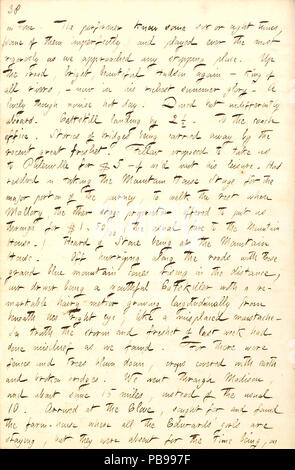 38
in tow. The performer knew some six or eight tunes,
some of them imperfectly and played over the most
vigorously as we approached any stopping place. Up
the broad bright beautiful Hudson again — king of
all rivers, — now in his richest summer glory. A
lively though noisy hot day. Dined but indifferently
aboard. Cattskill landing by 2½. To the coach
office. Stories of bridges being carried away by the
recent great freshet. Fellow proposed to take us
to Palenville for $5 — if we'd wait his leisure. Had
resolved on taking the Mountain House Stage for the
major portion of the journey & walk the rest when
Mallory, the other stage proprietor offered to put us
through for $1.50, the usual fare to the Mountain
House. Heard of Stone being at the Mountain
House. Off journeying along the roads with those
grand blue mountain cones rising in the distance,
our driver being a youthful Cattskiller with a re-
markable hairy meteor growing longitudinally from
beneath his right eye, like a misplaced mustache.
In truth the storm and freshet of last week had
done mischief as we found. For there were
fences and trees blown down, crops covered with earth
and broken bridges. We went through Madison,
and about some 15 miles, instead of the usual
10. Arrived at the Clove, sought for and found
the farm-house where all the Edwards girls are
staying, but they were absent for the time being, on
alamy
PB997F